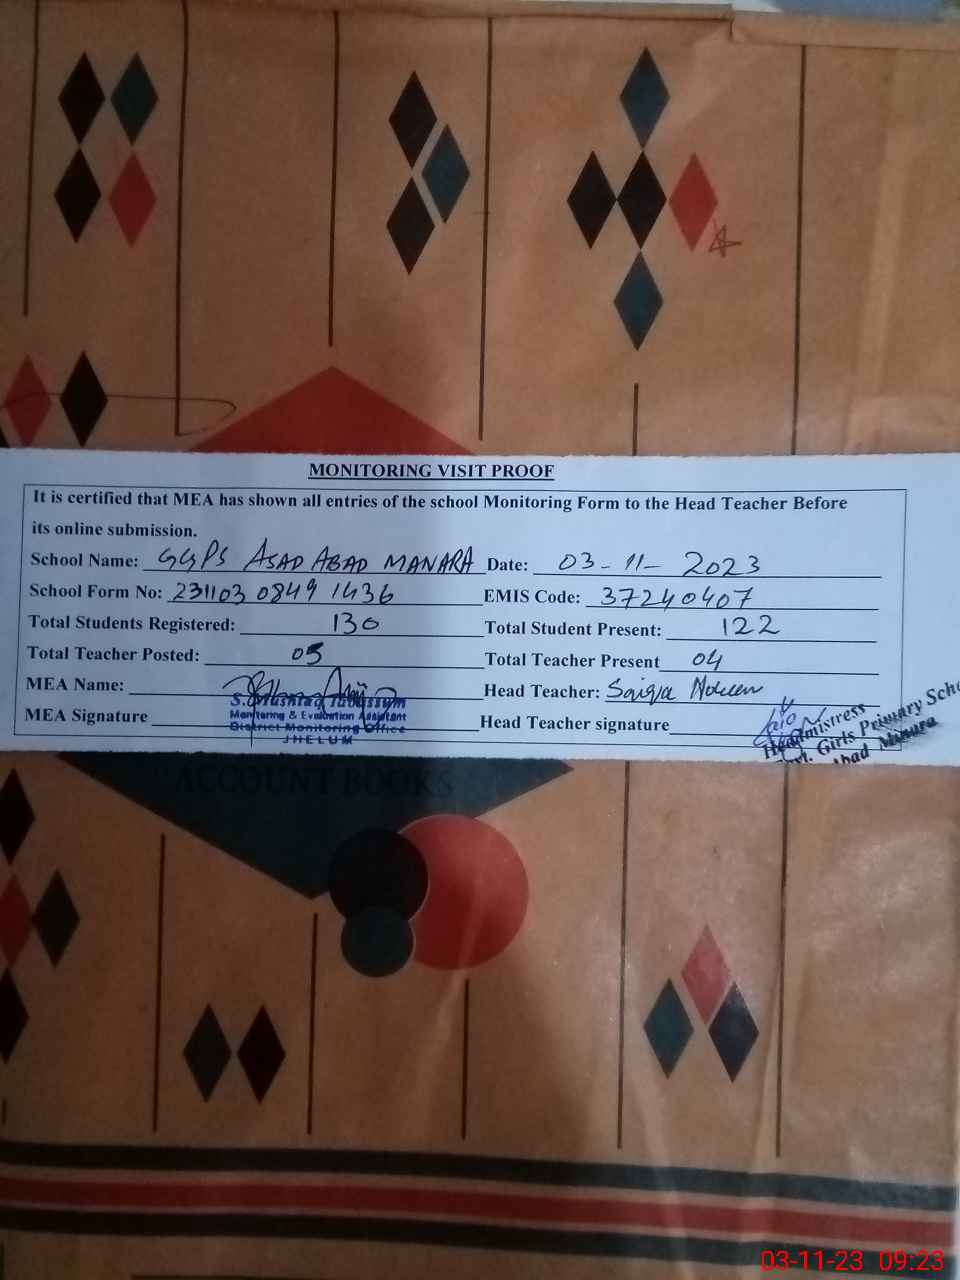 MONITORING VISIT PROOF
It is certified that MEA has shown all entries of the school Monitoring Form to the Head Teacher Before
its online submission.
School Name: GGPS ASAD ABAD MANARA Date: 03-11-2023
School Form No: 231103 0849 1436 EMIS Code: 37240407
Total Students Registered: 130 Total Student Present: 122
Total Teacher Posted: 05 Total Teacher Present 04
MEA Name: Head Teacher: Saiqa Noreen
S. Mushtaq Tabassum
MEA Signature Head Teacher signature
Monitoring & Evaluation Assistant
District Monitoring Office
JHELUM
Headmistress
Girls Primary Scho
abad Manara
ACCOUNT BOOKS
03-11-23 09:23